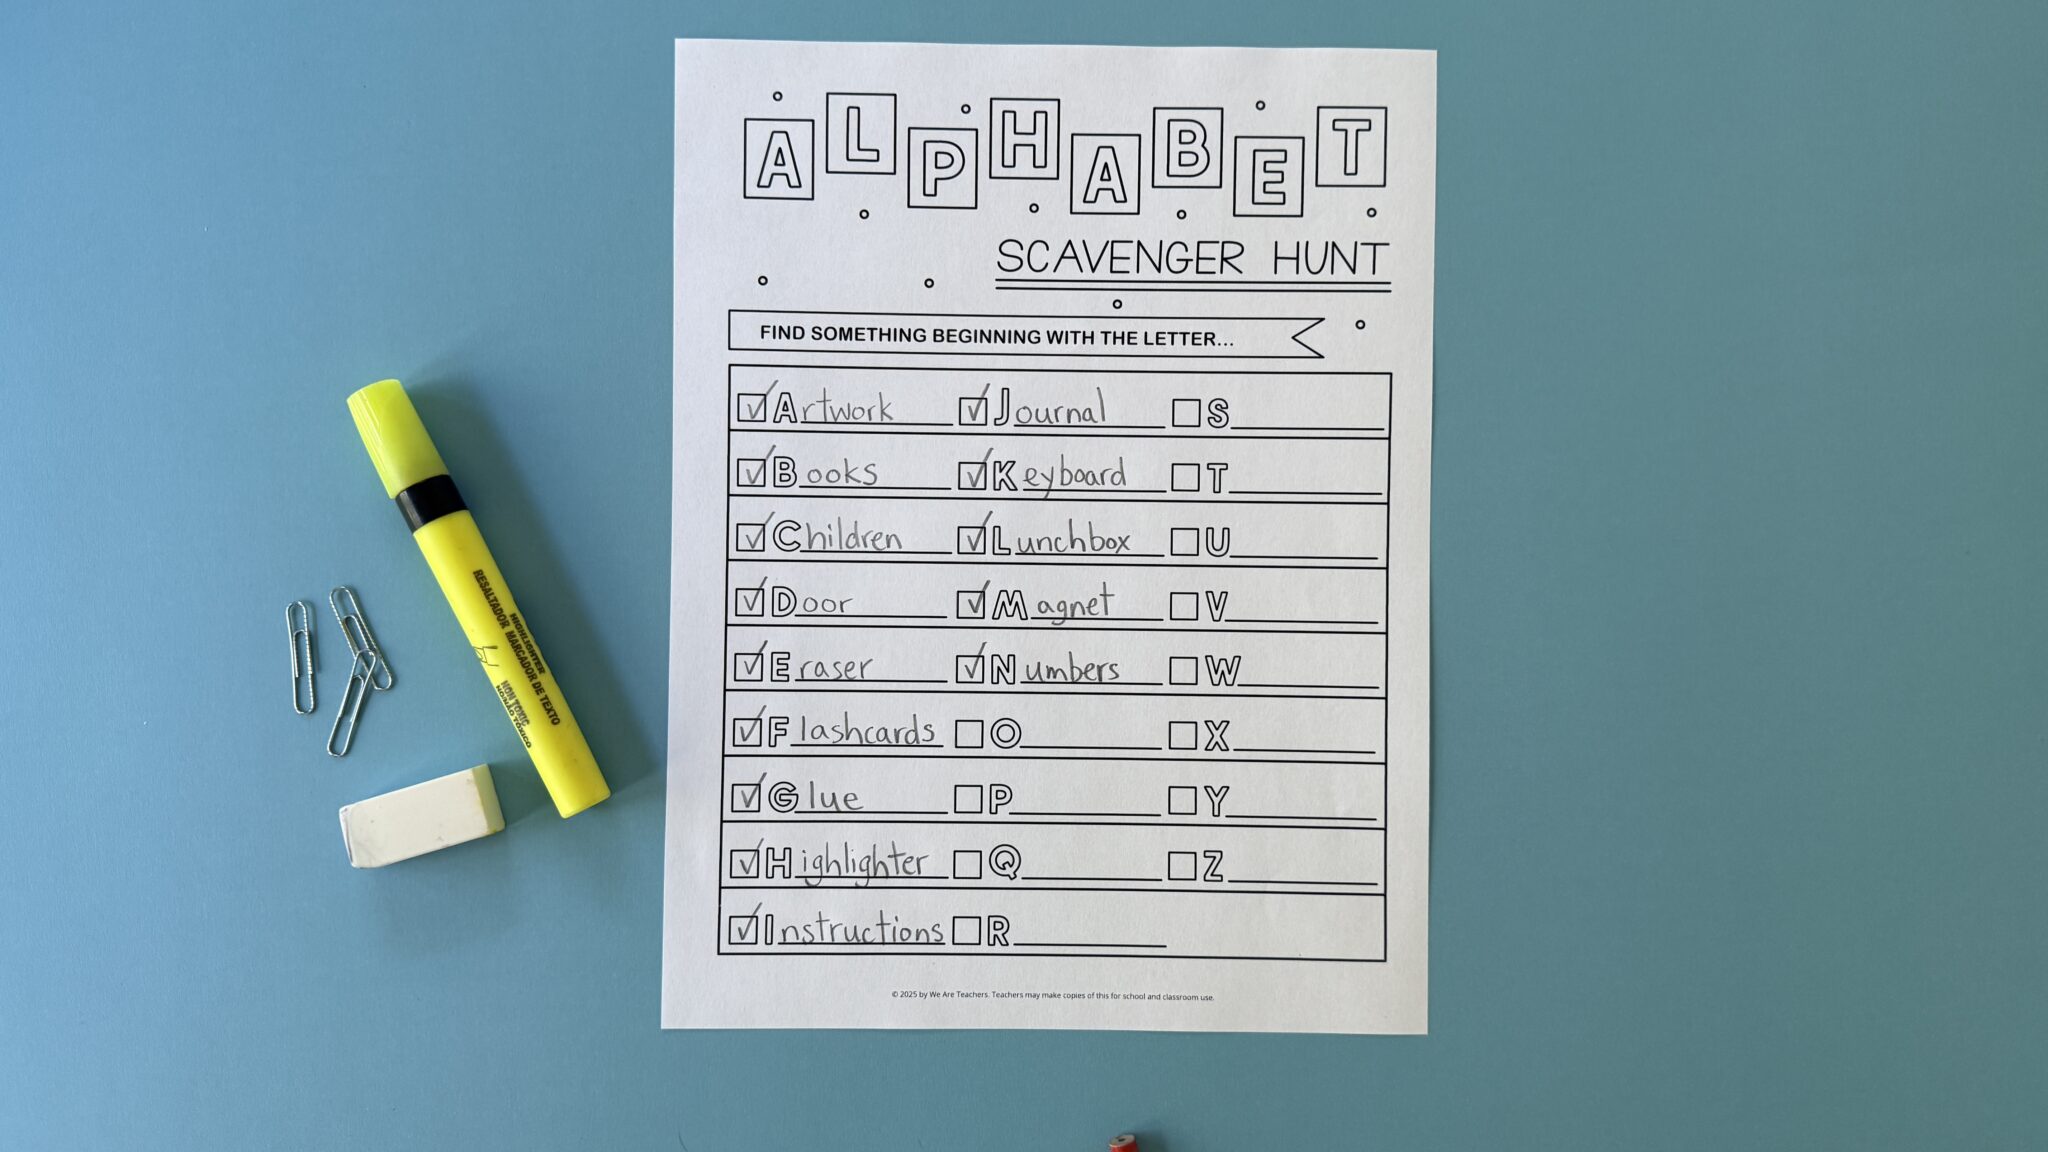 ALPHABET
SCAVENGER HUNT
FIND SOMETHING BEGINNING WITH THE LETTER...
Artwork Journal S
Books Keyboard T
Children Lunchbox U
Door Magnet V
Eraser Numbers W
Flashcards O X
Glue P Y
Highlighter Q Z
Instructions R
© 2025 by We Are Teachers. Teachers may make copies of this for school and classroom use.
HIGHLIGHTER
RESALTADOR MARCADOR DE TEXTO
NON TOXIC
NO TÓXICO